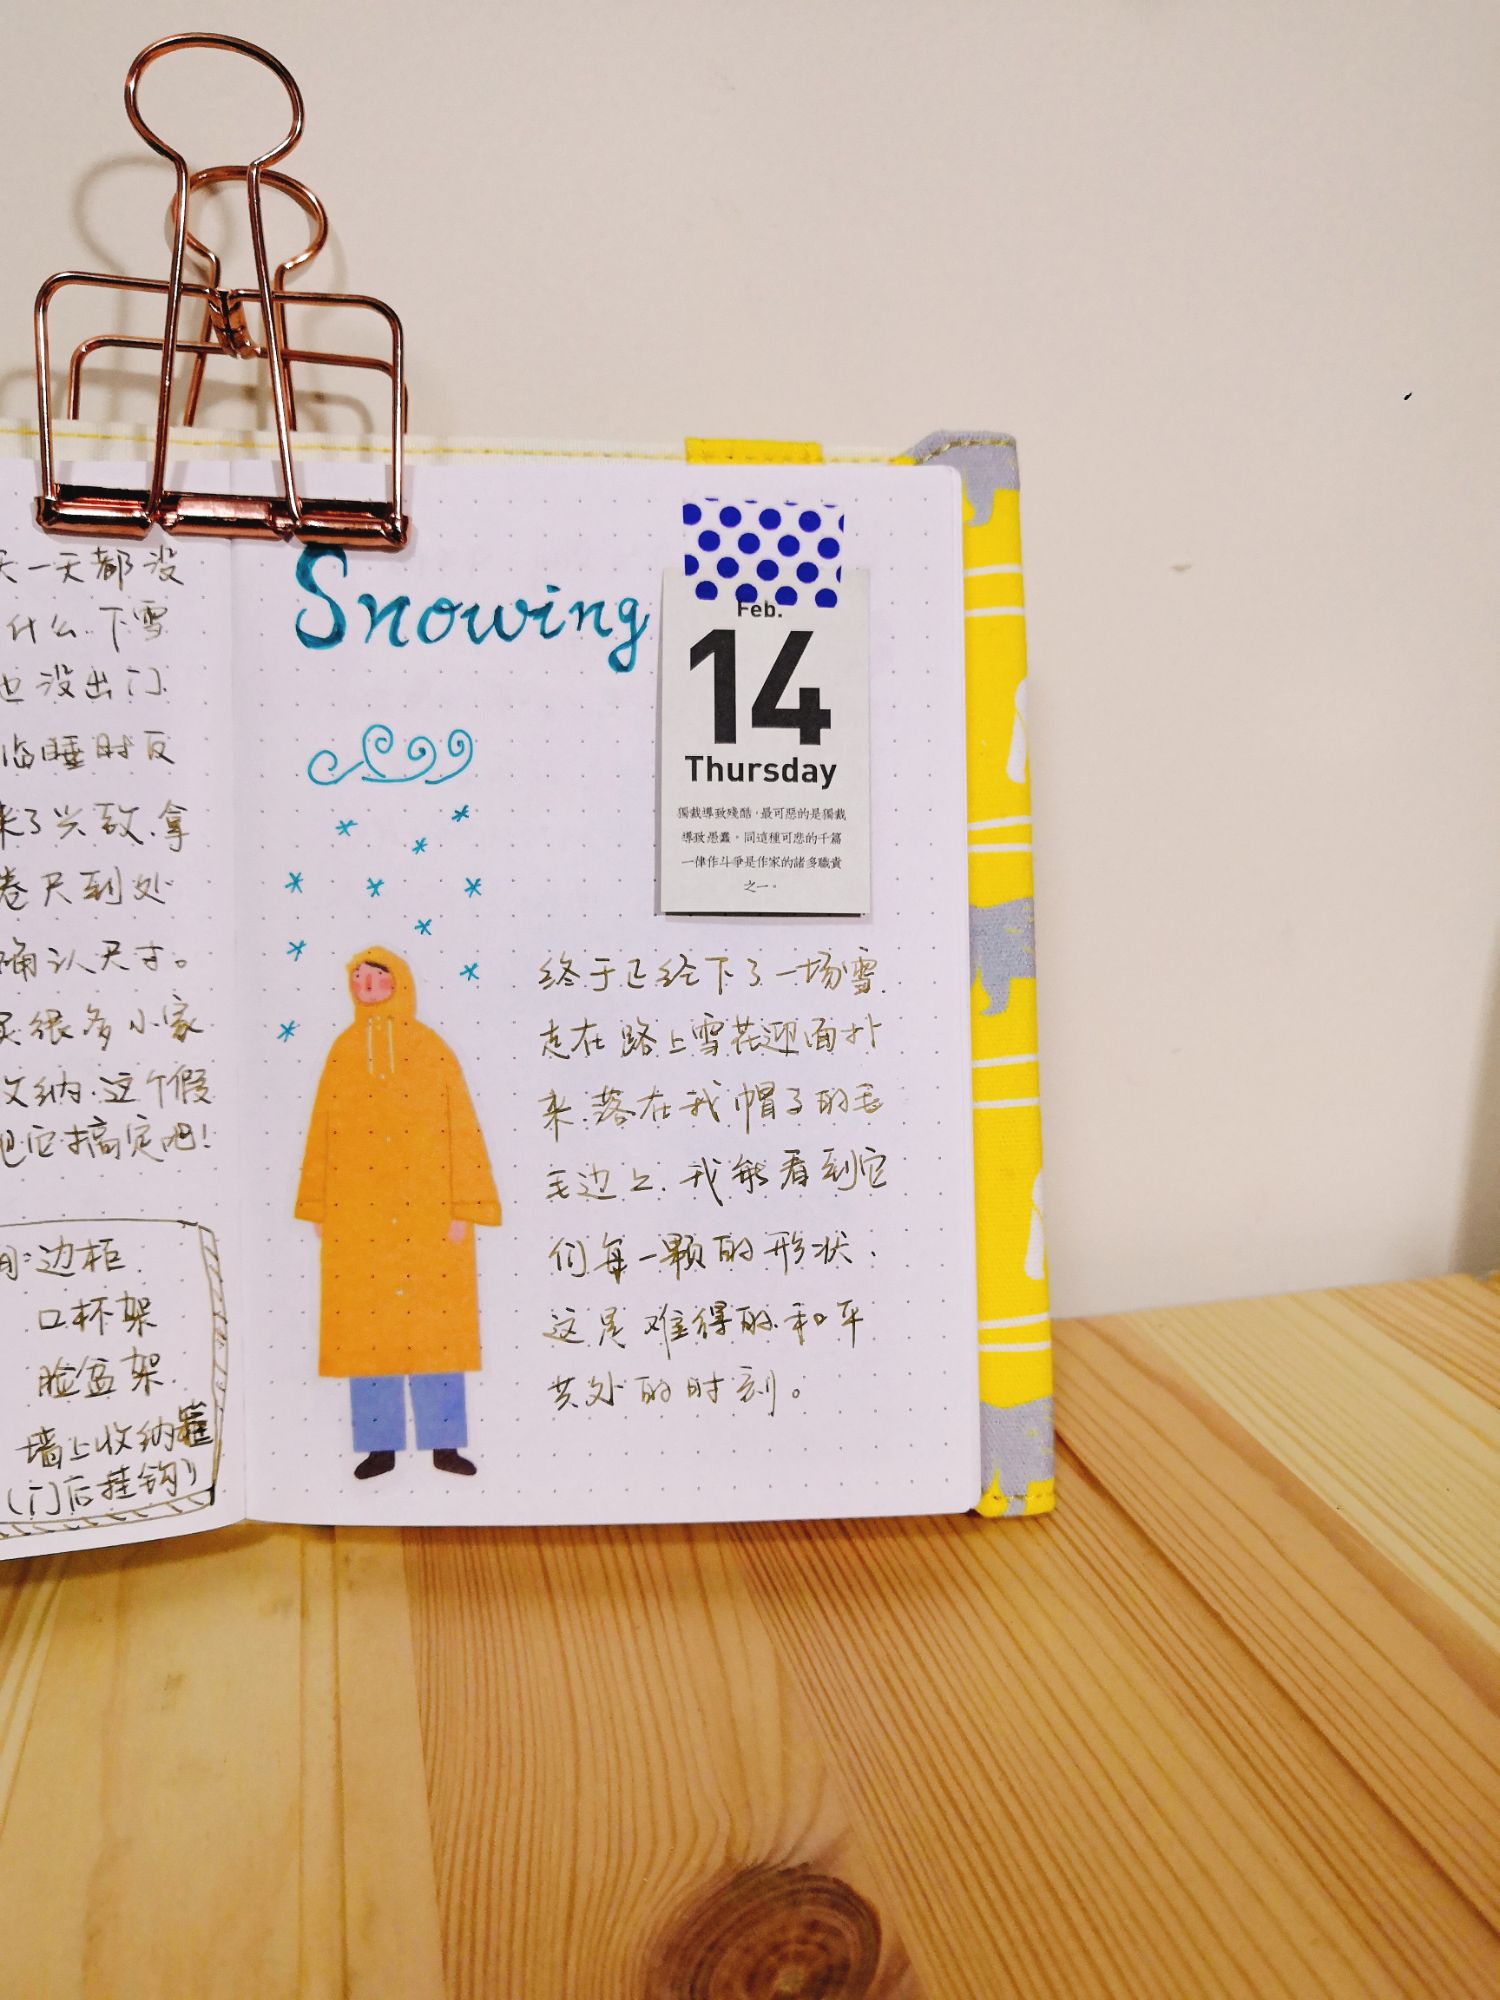 天一天都没
什么.下雪
也没出门.
临睡时反
来了兴致.拿
卷尺到处
确认尺寸。
买很多小家
收纳.这个假
把它搞定吧!
边柜
口杯架
脸盆架
墙上收纳
(门后挂钩)
Snowing
Feb.
14
Thursday
獨裁導致殘酷，最可惡的是獨裁
導致愚蠢。同這種可悲的千篇
一律作斗爭是作家的諸多職責
之一。
终于已经下了一场雪
走在路上雪花迎面扑
来.落在我帽子的毛
毛边上.我能看到它
们每一颗的形状.
这是难得的和平
共处的时刻。